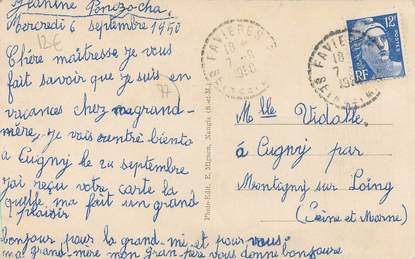 Jeanine Bruzo-cha.
Mercredi 6 septembre 1950
12€
Chère maîtresse je vous
fait savoir que je suis en
vacances chez ma grand-
mère, je vais rentré biento
à Cugny le 24 septembre
j'ai reçu votre carte la
quelle ma fait un grand
plaisir
bonjour pour la grand-mé et pour vous
ma grand-mère mon gran-père vous donne bonjoure
Photo-Edit. E. Mignon, Nangis (S.-et-M.)
FAVIÈRES
18
7-9
1950
12F
RF
POSTES
Mlle Vidalle
à Cugny par
Montigny sur Loing
(Seine et Marne)